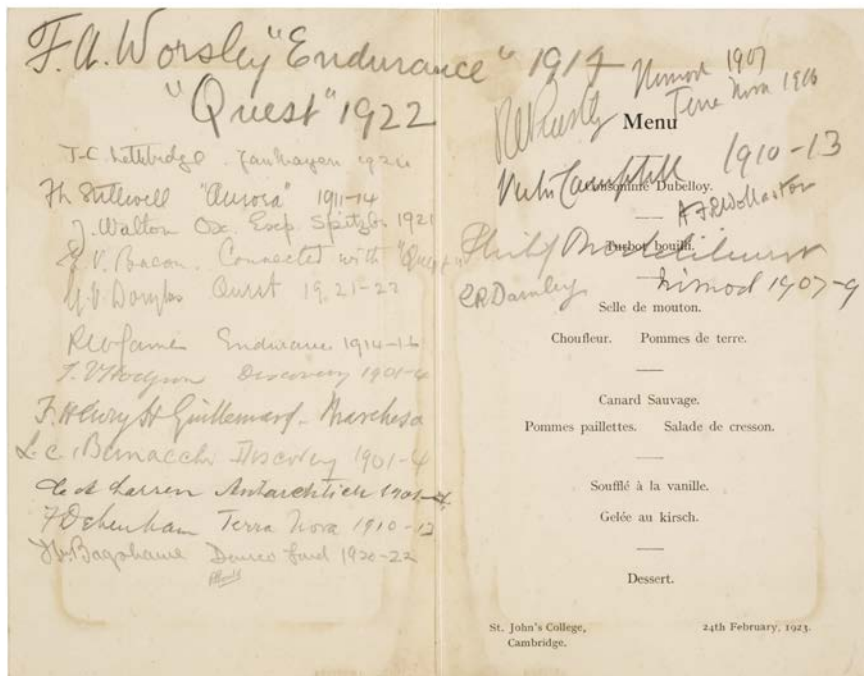 F. A. Worsley "Endurance" 1914
"Quest" 1922
T. C. Lethbridge. Jan Mayen 1921
Fh Stillwell "Aurora" 1911-14
J. Walton Ox. Exp. Spitzbn 1921
E. V. Bacon. Connected with "Quest"
G. V. Douglas Quest 1921-22
RW James Endurance 1914-16
T. V Hodgson Discovery 1901-4
F. Henry H Guillemard - Marchesa
L. C. Bernacchi Discovery 1901-4
C A Larsen Antarcktick 1901-4
F Debenham Terra Nova 1910-13
Bagshawe 1920-22
RE Priestly Nimrod 1907
Terra Nova 1910
Menu
Victor Campbell 1910-13
Consommé Dubelloy.
AFR Wollaston
Turbot bouilli.
Philip Brocklehurst
Nimrod 1907-9
ER Darnley
Selle de mouton.
Choufleur. Pommes de terre.
Canard Sauvage.
Pommes paillettes. Salade de cresson.
Soufflé à la vanille.
Gelée au kirsch.
Dessert.
St. John's College, 24th February, 1923.
Cambridge.